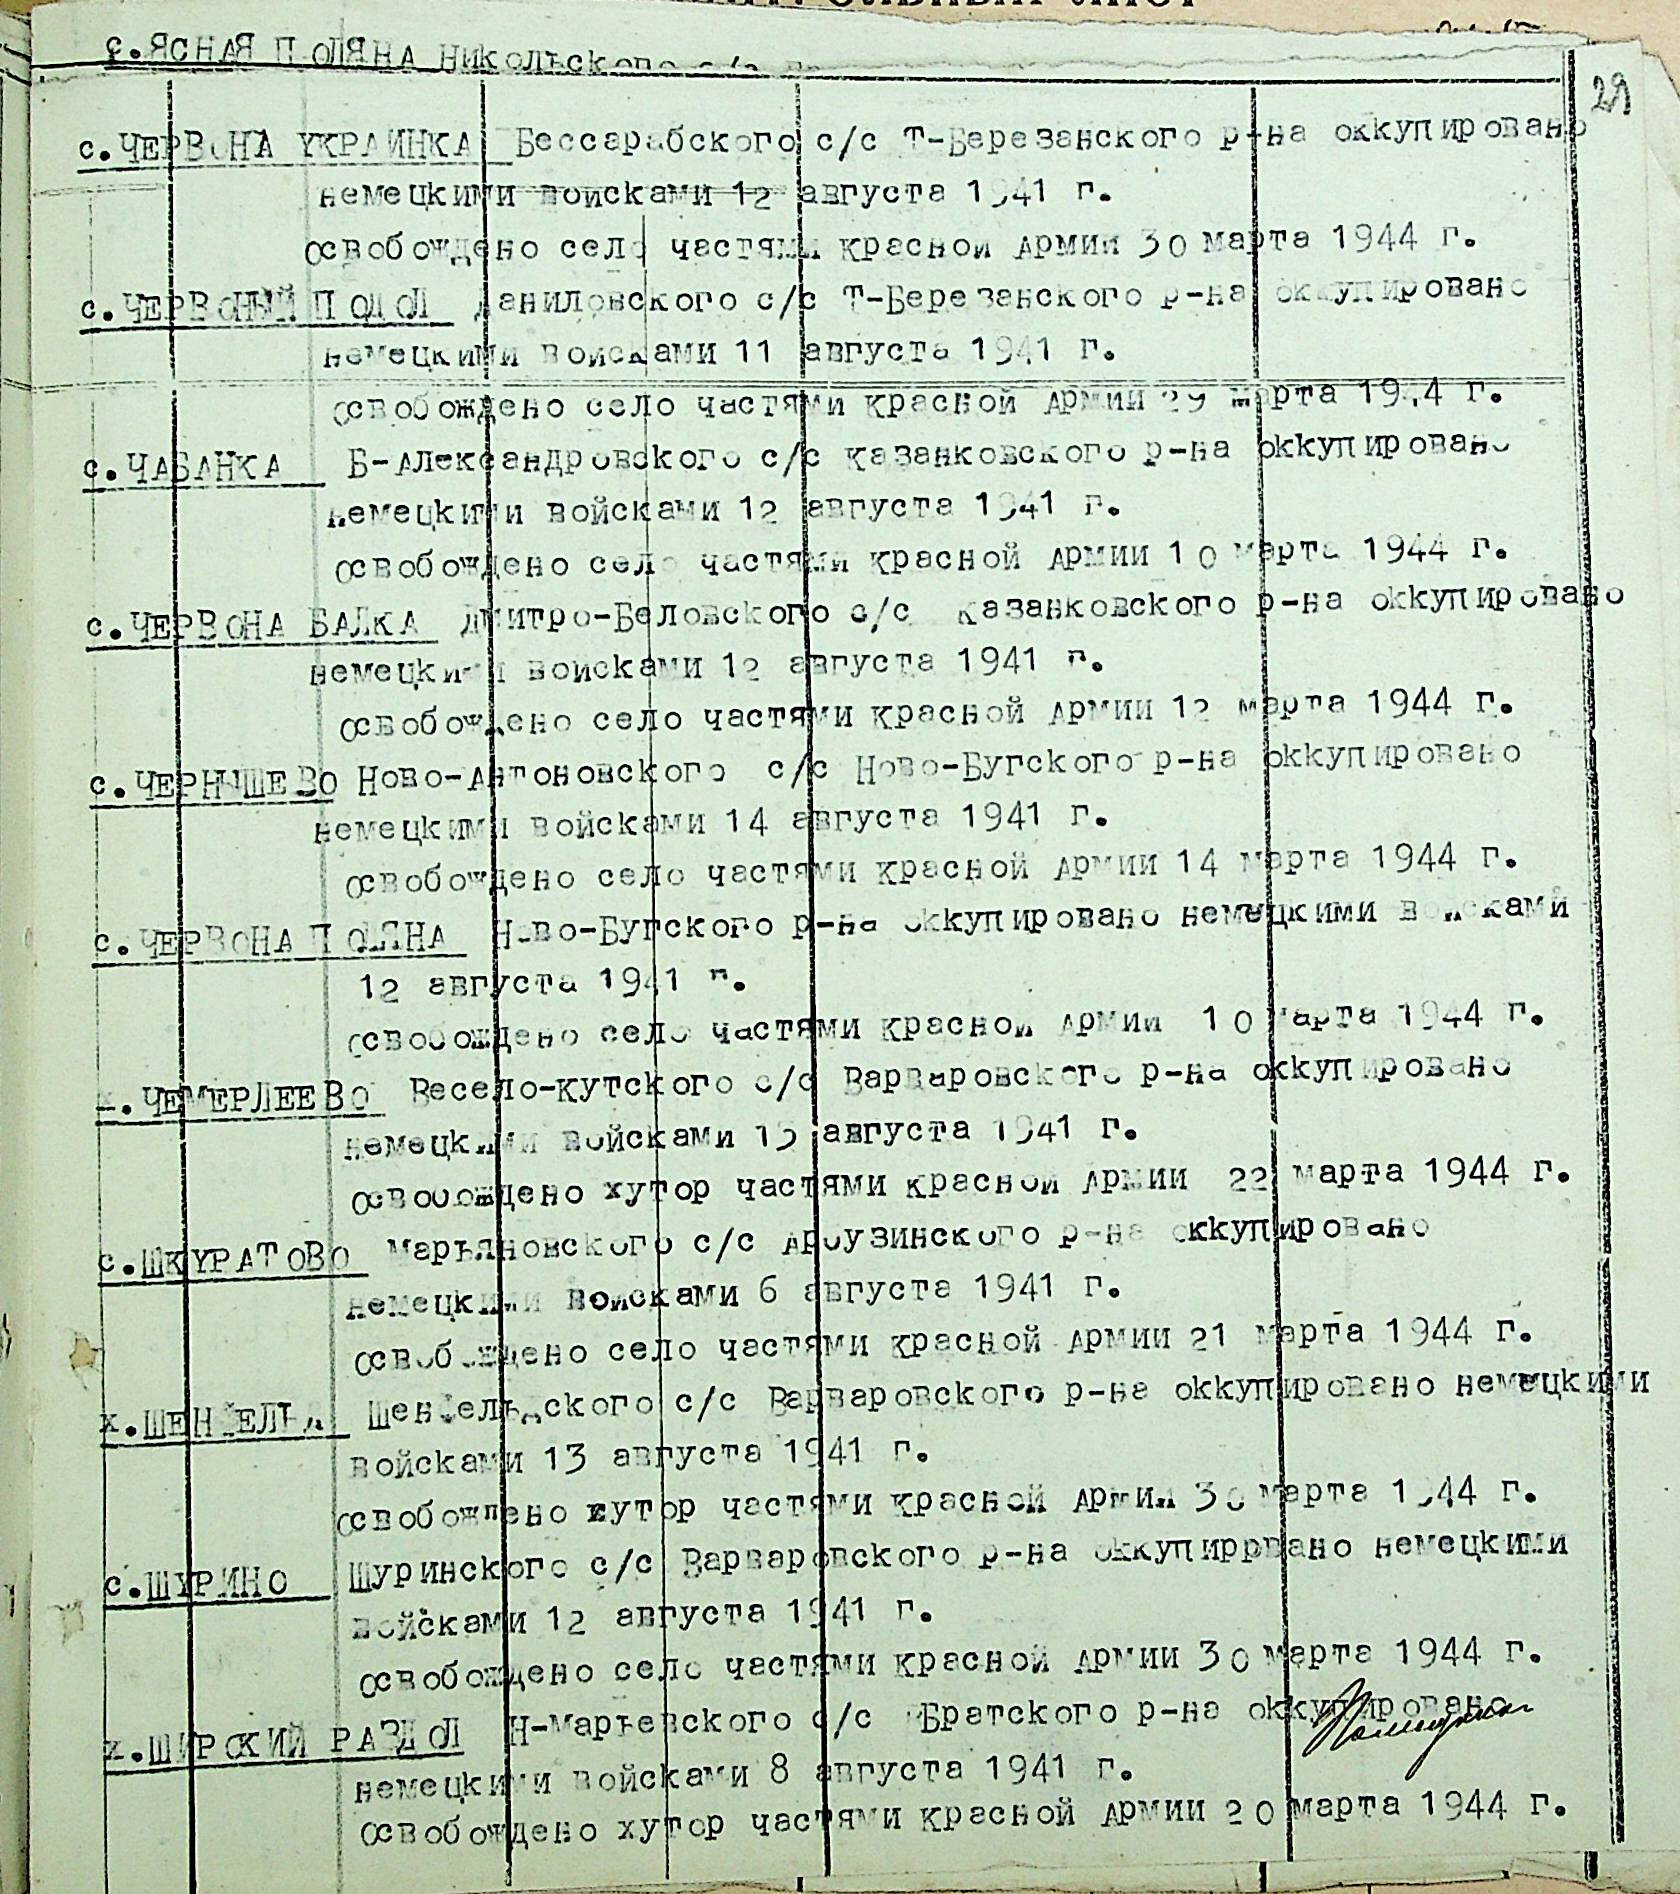 с.ЯСНАЯ ПОЛЯНА Никольского с/с
29
с.ЧЕРВОНА УКРАИНКА Бессарабского с/с Т-Березанского р-на оккупировано
немецкими войсками 12 августа 1941 г.
освобождено село частями красной Армии 30 марта 1944 г.
с.ЧЕРВОНЫЙ ПОДОЛ Даниловского с/с Т-Березанского р-на оккупировано
немецкими войсками 11 августа 1941 г.
освобождено село частями красной Армии 29 марта 1944 г.
с.ЧАБАНКА Б-Александровского с/с Казанковского р-на оккупировано
немецкими войсками 12 августа 1941 г.
освобождено село частями красной Армии 10 марта 1944 г.
с.ЧЕРВОНА БАЛКА Дмитро-Беловского с/с Казанковского р-на оккупировано
немецкими войсками 12 августа 1941 г.
освобождено село частями красной Армии 12 марта 1944 г.
с.ЧЕРНЫШЕВО Ново-Антоновского с/с Ново-Бугского р-на оккупировано
немецкими войсками 14 августа 1941 г.
освобождено село частями красной Армии 14 марта 1944 г.
с.ЧЕРВОНА ПОЛЯНА Ново-Бугского р-на оккупировано немецкими войсками
12 августа 1941 г.
освобождено село частями красной Армии 10 марта 1944 г.
х.ЧЕМЕРЛЕЕВО Весело-Кутского с/с Варваровского р-на оккупировано
немецкими войсками 13 августа 1941 г.
освобождено хутор частями красной Армии 22 марта 1944 г.
с.ШКУРАТОВО Марьяновского с/с Арбузинского р-на оккупировано
немецкими войсками 6 августа 1941 г.
освобождено село частями красной Армии 21 марта 1944 г.
х.ШЕНФЕЛЬД Шенфельдского с/с Варваровского р-на оккупировано немецкими
войсками 13 августа 1941 г.
освобождено хутор частями красной Армии 30 марта 1944 г.
с.ЩУРИНО Щуринского с/с Варваровского р-на оккупиррвано немецкими
войсками 12 августа 1941 г.
освобождено село частями красной Армии 30 марта 1944 г.
х.ШИРОКИЙ РАЗДОЛ Н-Марьевского с/с Братского р-на оккупировано
немецкими войсками 8 августа 1941 г.
освобождено хутор частями красной Армии 20 марта 1944 г.